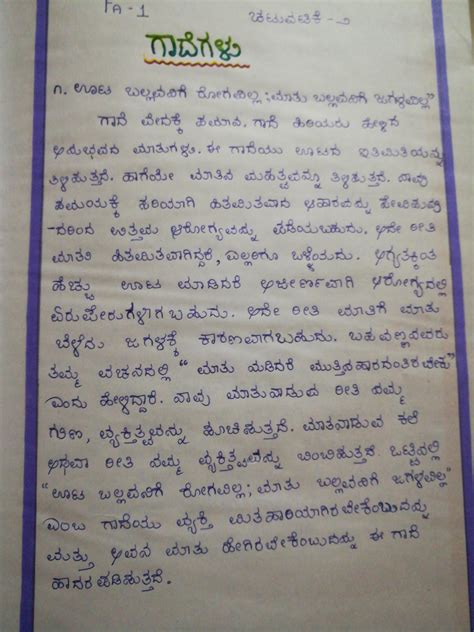 FA - 1
ಚಟುವಟಿಕೆ - ೨
ಗಾದೆಗಳು
೧. ಊಟ ಬಲ್ಲವನಿಗೆ ರೋಗವಿಲ್ಲ; ಮಾತು ಬಲ್ಲವನಿಗೆ ಜಗಳವಿಲ್ಲ"
ಗಾದೆ ವೇದಕ್ಕೆ ಸಮಾನ. ಗಾದೆ ಹಿರಿಯರು ಹೇಳಿದ
ಅನುಭವದ ಮಾತುಗಳು. ಈ ಗಾದೆಯು ಊಟದ ಇತಿಮಿತಿಯನ್ನು
ತಿಳಿಸುತ್ತದೆ. ಹಾಗೆಯೇ ಮಾತಿನ ಮಹತ್ವವನ್ನೂ ತಿಳಿಸುತ್ತದೆ. ನಾವು
ಸಮಯಕ್ಕೆ ಸರಿಯಾಗಿ ಹಿತಮಿತವಾದ ಆಹಾರವನ್ನು ಸೇವಿಸುವು
-ದರಿಂದ ಉತ್ತಮ ಆರೋಗ್ಯವನ್ನು ಪಡೆಯಬಹುದು. ಅದೇ ರೀತಿ
ಮಾತು ಹಿತಮಿತವಾಗಿದ್ದರೆ, ಎಲ್ಲರಿಗೂ ಒಳ್ಳೆಯದು. ಅಗತ್ಯಕ್ಕಿಂತ
ಹೆಚ್ಚು ಊಟ ಮಾಡಿದರೆ ಅಜೀರ್ಣವಾಗಿ ಆರೋಗ್ಯದಲ್ಲಿ
ಏರುಪೇರುಗಳಾಗಬಹುದು. ಅದೇ ರೀತಿ ಮಾತಿಗೆ ಮಾತು
ಬೆಳೆದು ಜಗಳಕ್ಕೆ ಕಾರಣವಾಗಬಹುದು. ಬಸವಣ್ಣನವರು
ತಮ್ಮ ವಚನದಲ್ಲಿ "ಮಾತು ನುಡಿದರೆ ಮುತ್ತಿನಹಾರದಂತಿರಬೇಕು"
ಎಂದು ಹೇಳಿದ್ದಾರೆ. ನಾವು ಮಾತನಾಡುವ ರೀತಿ ನಮ್ಮ
ಗುಣ, ವ್ಯಕ್ತಿತ್ವವನ್ನು ಸೂಚಿಸುತ್ತದೆ. ಮಾತನಾಡುವ ಕಲೆ
ಅಥವಾ ರೀತಿ ನಮ್ಮ ವ್ಯಕ್ತಿತ್ವವನ್ನು ಬಿಂಬಿಸುತ್ತದೆ. ಒಟ್ಟಿನಲ್ಲಿ
"ಊಟ ಬಲ್ಲವನಿಗೆ ರೋಗವಿಲ್ಲ; ಮಾತು ಬಲ್ಲವನಿಗೆ ಜಗಳವಿಲ್ಲ"
ಎಂಬ ಗಾದೆಯು ವ್ಯಕ್ತಿ ಮಿತಹಾರಿಯಾಗಿರಬೇಕೆಂಬುದನ್ನು
ಮತ್ತು ಅವನ ಮಾತು ಹೇಗಿರಬೇಕೆಂಬುದನ್ನು ಈ ಗಾದೆ
ಸಾದರಪಡಿಸುತ್ತದೆ.